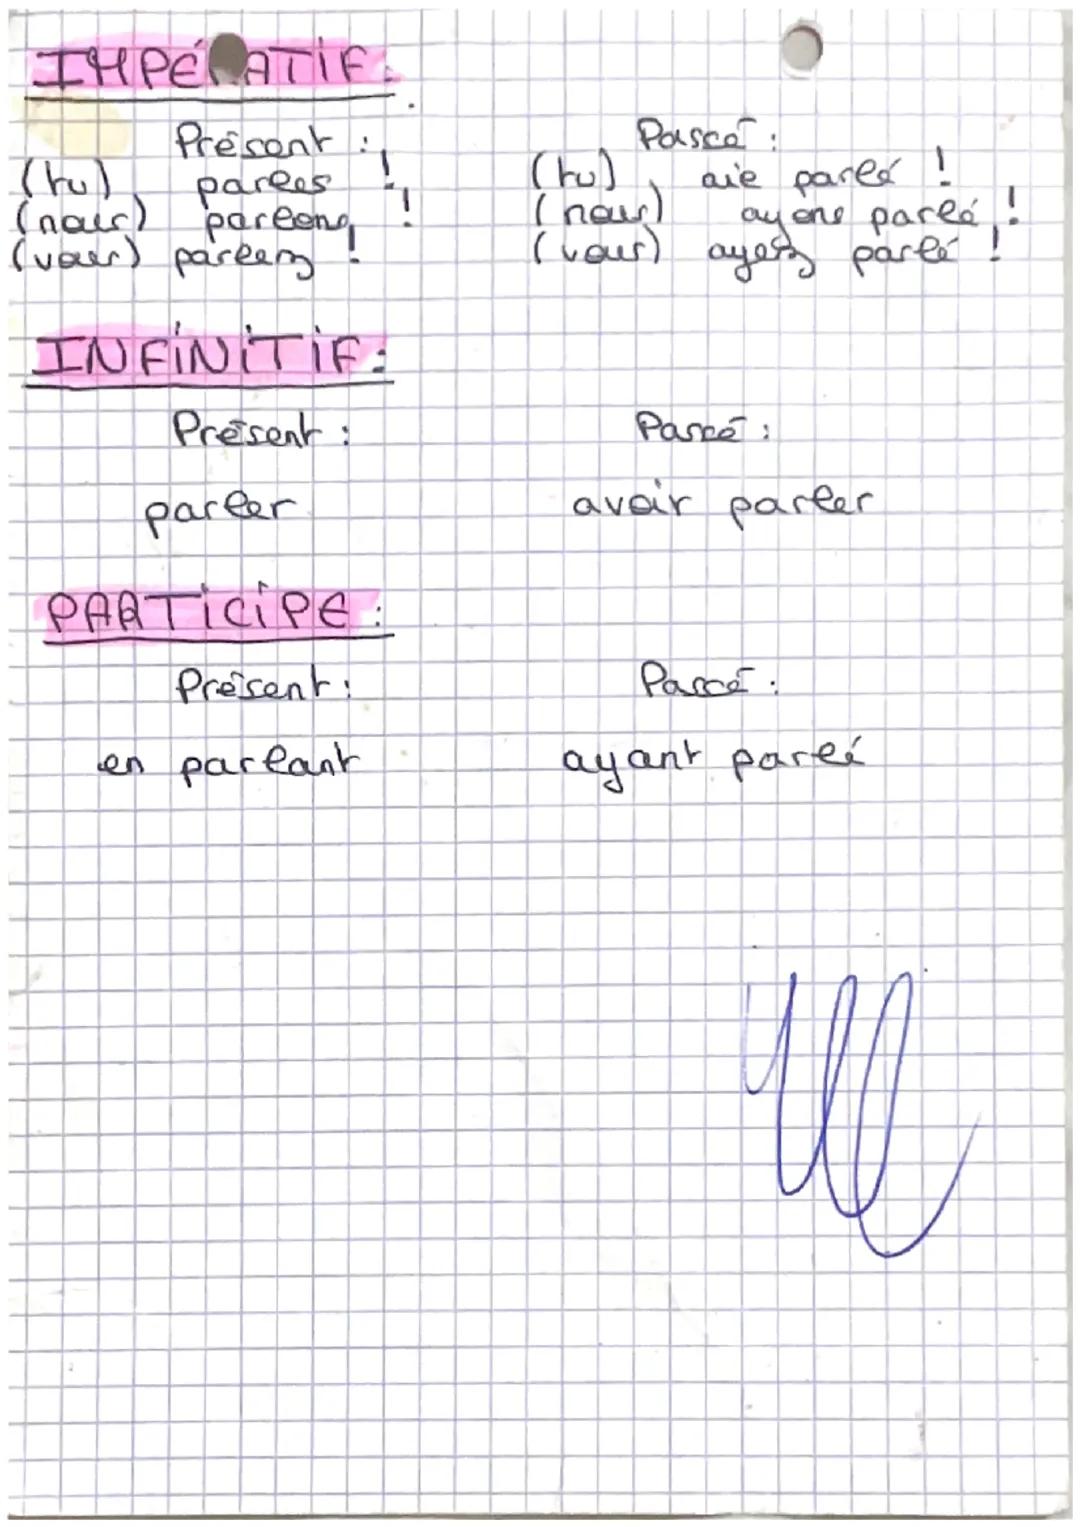 IMPÉRATIF:
Présent : Passé :
(tu) parles ! (tu) aie parlé !
(nous) parlons ! (nous) ayons parlé !
(vous) parlez ! (vous) ayez parlé !
INFINITIF:
Présent : Passé :
parler avoir parler
PARTICIPE :
Présent : Passé :
en parlant ayant parlé